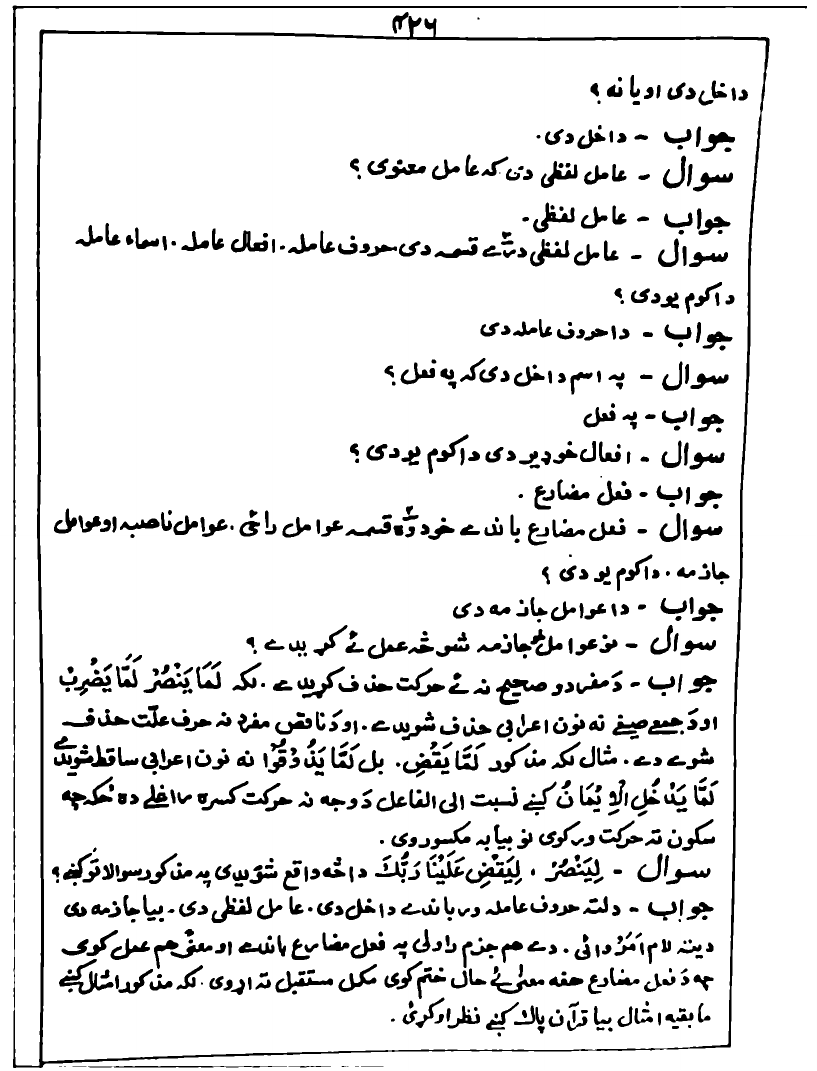 ۴۲۶
داخل دی او یا نه ؟
جواب - داخل دی.
سوال - عامل لفظی دی که عامل معنوی ؟
جواب - عامل لفظی.
سوال - عامل لفظی درئے قسمه دی. حروف عامله. افعال عامله. اسماء عامله
داکوم یو دی ؟
جواب - دا حروف عامله دی
سوال - په اسم داخل دی که په فعل ؟
جواب - په فعل
سوال - افعال خو ډیر دی داکوم یو دی ؟
جواب - فعل مضارع .
سوال - فعل مضارع باندے خو دوه قسمه عوامل راځی. عوامل ناصبه او عوامل
جازمه. داکوم یو دی ؟
جواب - دا عوامل جازمه دی
سوال - نو عوامل جازمه شو څه عمل ئے کړیدے ؟
جواب - دَ مفرد و صحیح نه ئے حرکت حذف کړیدے. لکه لَمَّا یَنْصُرْ لَمَّا یَضْرِبْ
او دَ جمعے صیغے نه نون اعرابی حذف شویدے. او دَ ناقص مفرد نه حرف علّت حذف
شوے دے. مثال لکه مذکور لَمَّا یَقْضِ. بل لَمَّا یَذُوْقُوْا نه نون اعرابی ساقط شویدے
لَمَّا یَدْخُلِ الْاِیْمَانُ کښے نسبت الی الفاعل دَ وجه نه حرکت کسره راغلے ده ځکه چه
سکون ته حرکت ورکوی نو بیا به مکسور وی.
سوال - لِیَنْصُرْ ، لِیَقْضِ عَلَیْنَا رَبُّكَ دا څه واقع شویدی په مذکور سوالاتو کښے؟
جواب - دلته حروف عامله ورباندے داخل دی. عامل لفظی دی. بیا جازمه دی
دیته لام اَمَرْ وائی. دے هم جزم راولی په فعل مضارع باندے او معنیً هم عمل کوی
چه دَ فعل مضارع هغه معنیٰ ئے حال ختم کوی مکمل مستقبل ته اړوی. لکه مذکور امثال کښے
مابقیه امثال بیا قرآن پاك کښے نظر اوکړئ.